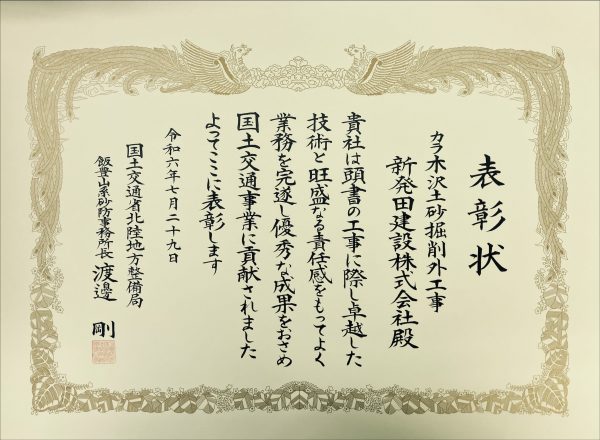 表彰状
カラ木沢土砂掘削外工事
新発田建設株式会社殿
貴社は頭書の工事に際し卓越した
技術と旺盛なる責任感をもってよく
業務を完遂し優秀な成果をおさめ
国土交通事業に貢献されました
よってここに表彰します
令和六年七月二十九日
国土交通省北陸地方整備局
飯豊山系砂防事務所長 渡邉 剛